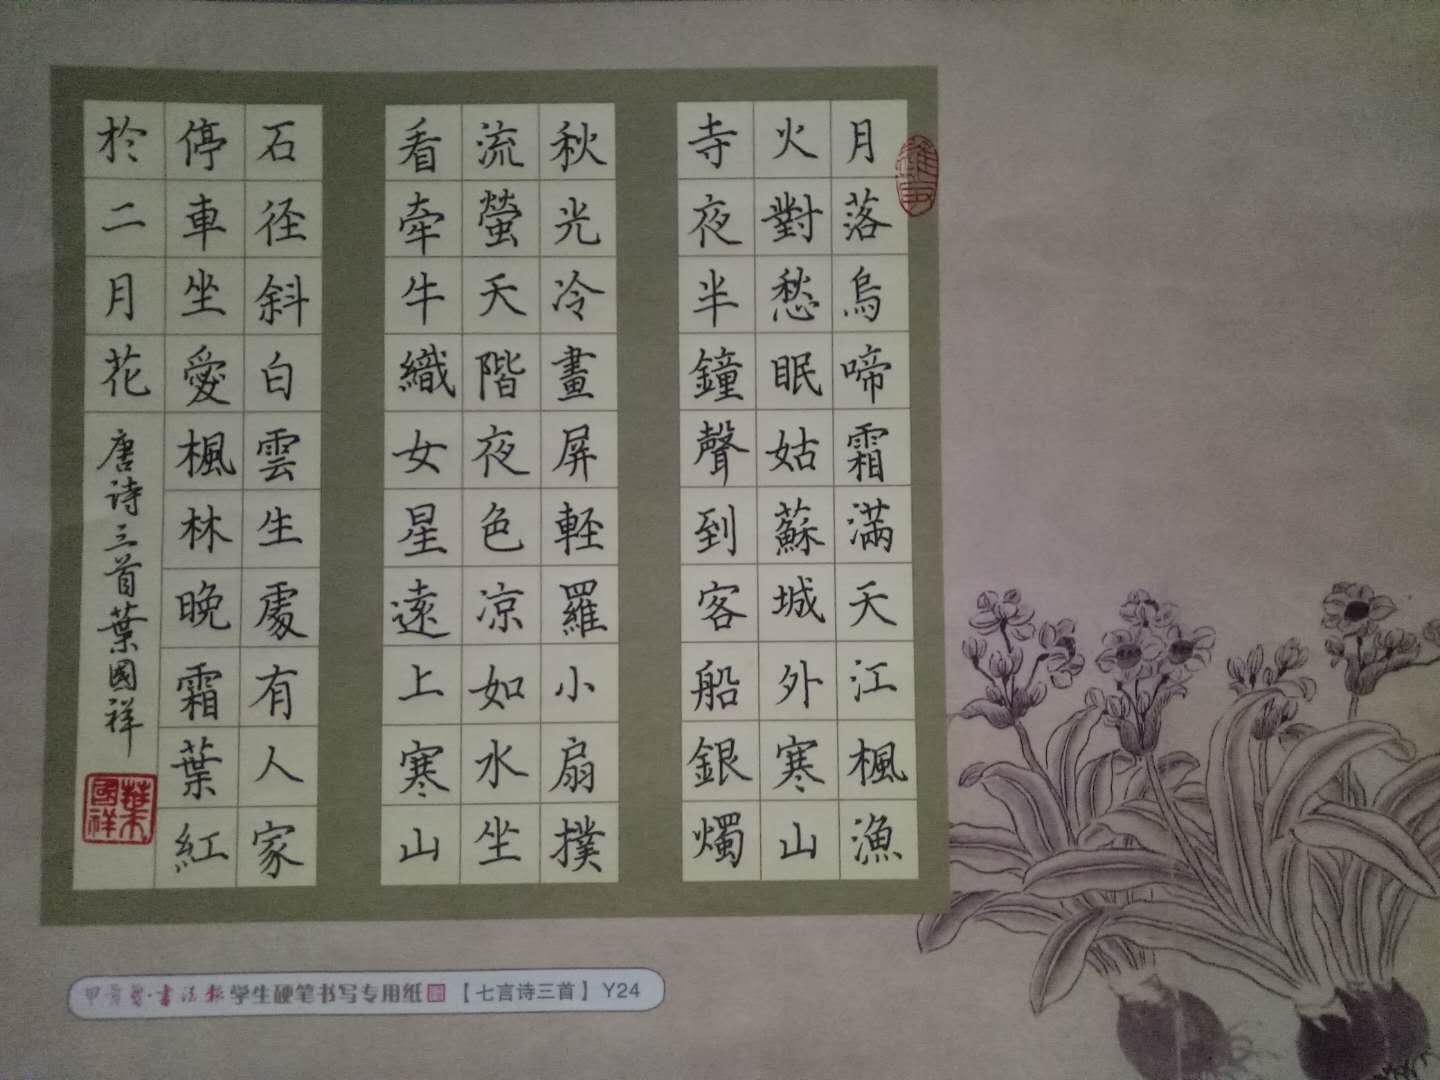 月落烏啼霜滿天江楓漁
火對愁眠姑蘇城外寒山
寺夜半鐘聲到客船銀燭
秋光冷畫屏軽羅小扇撲
流螢天階夜色凉如水坐
看牽牛織女星遠上寒山
石径斜白雲生處有人家
停車坐愛楓林晚霜葉紅
於二月花
唐诗三首葉國祥
葉國祥
書法报学生硬笔书写专用纸【七言诗三首】Y24